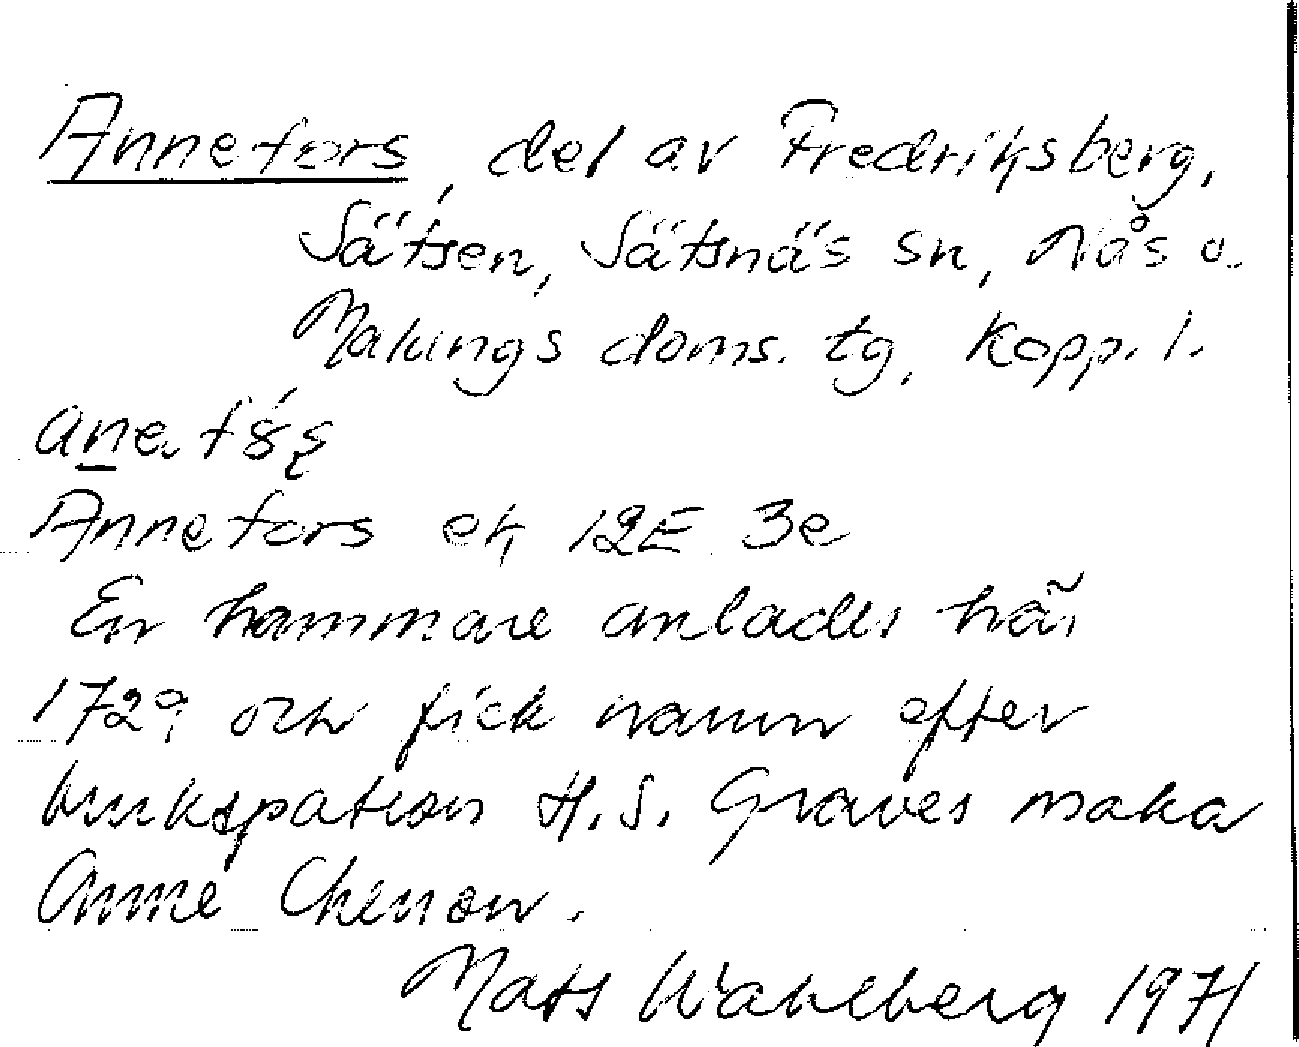 Annefors, del av Fredriksberg,
Sätsen, Sätsnäs sn, Nås o.
Malungs doms. tg, Kopp. l.
Annefors ek 12E 3e
En hammare anlades här
1729 och fick namn efter
brukspatron H. S. Graves maka
Anne Chenon.
Mats Wahlberg 1971